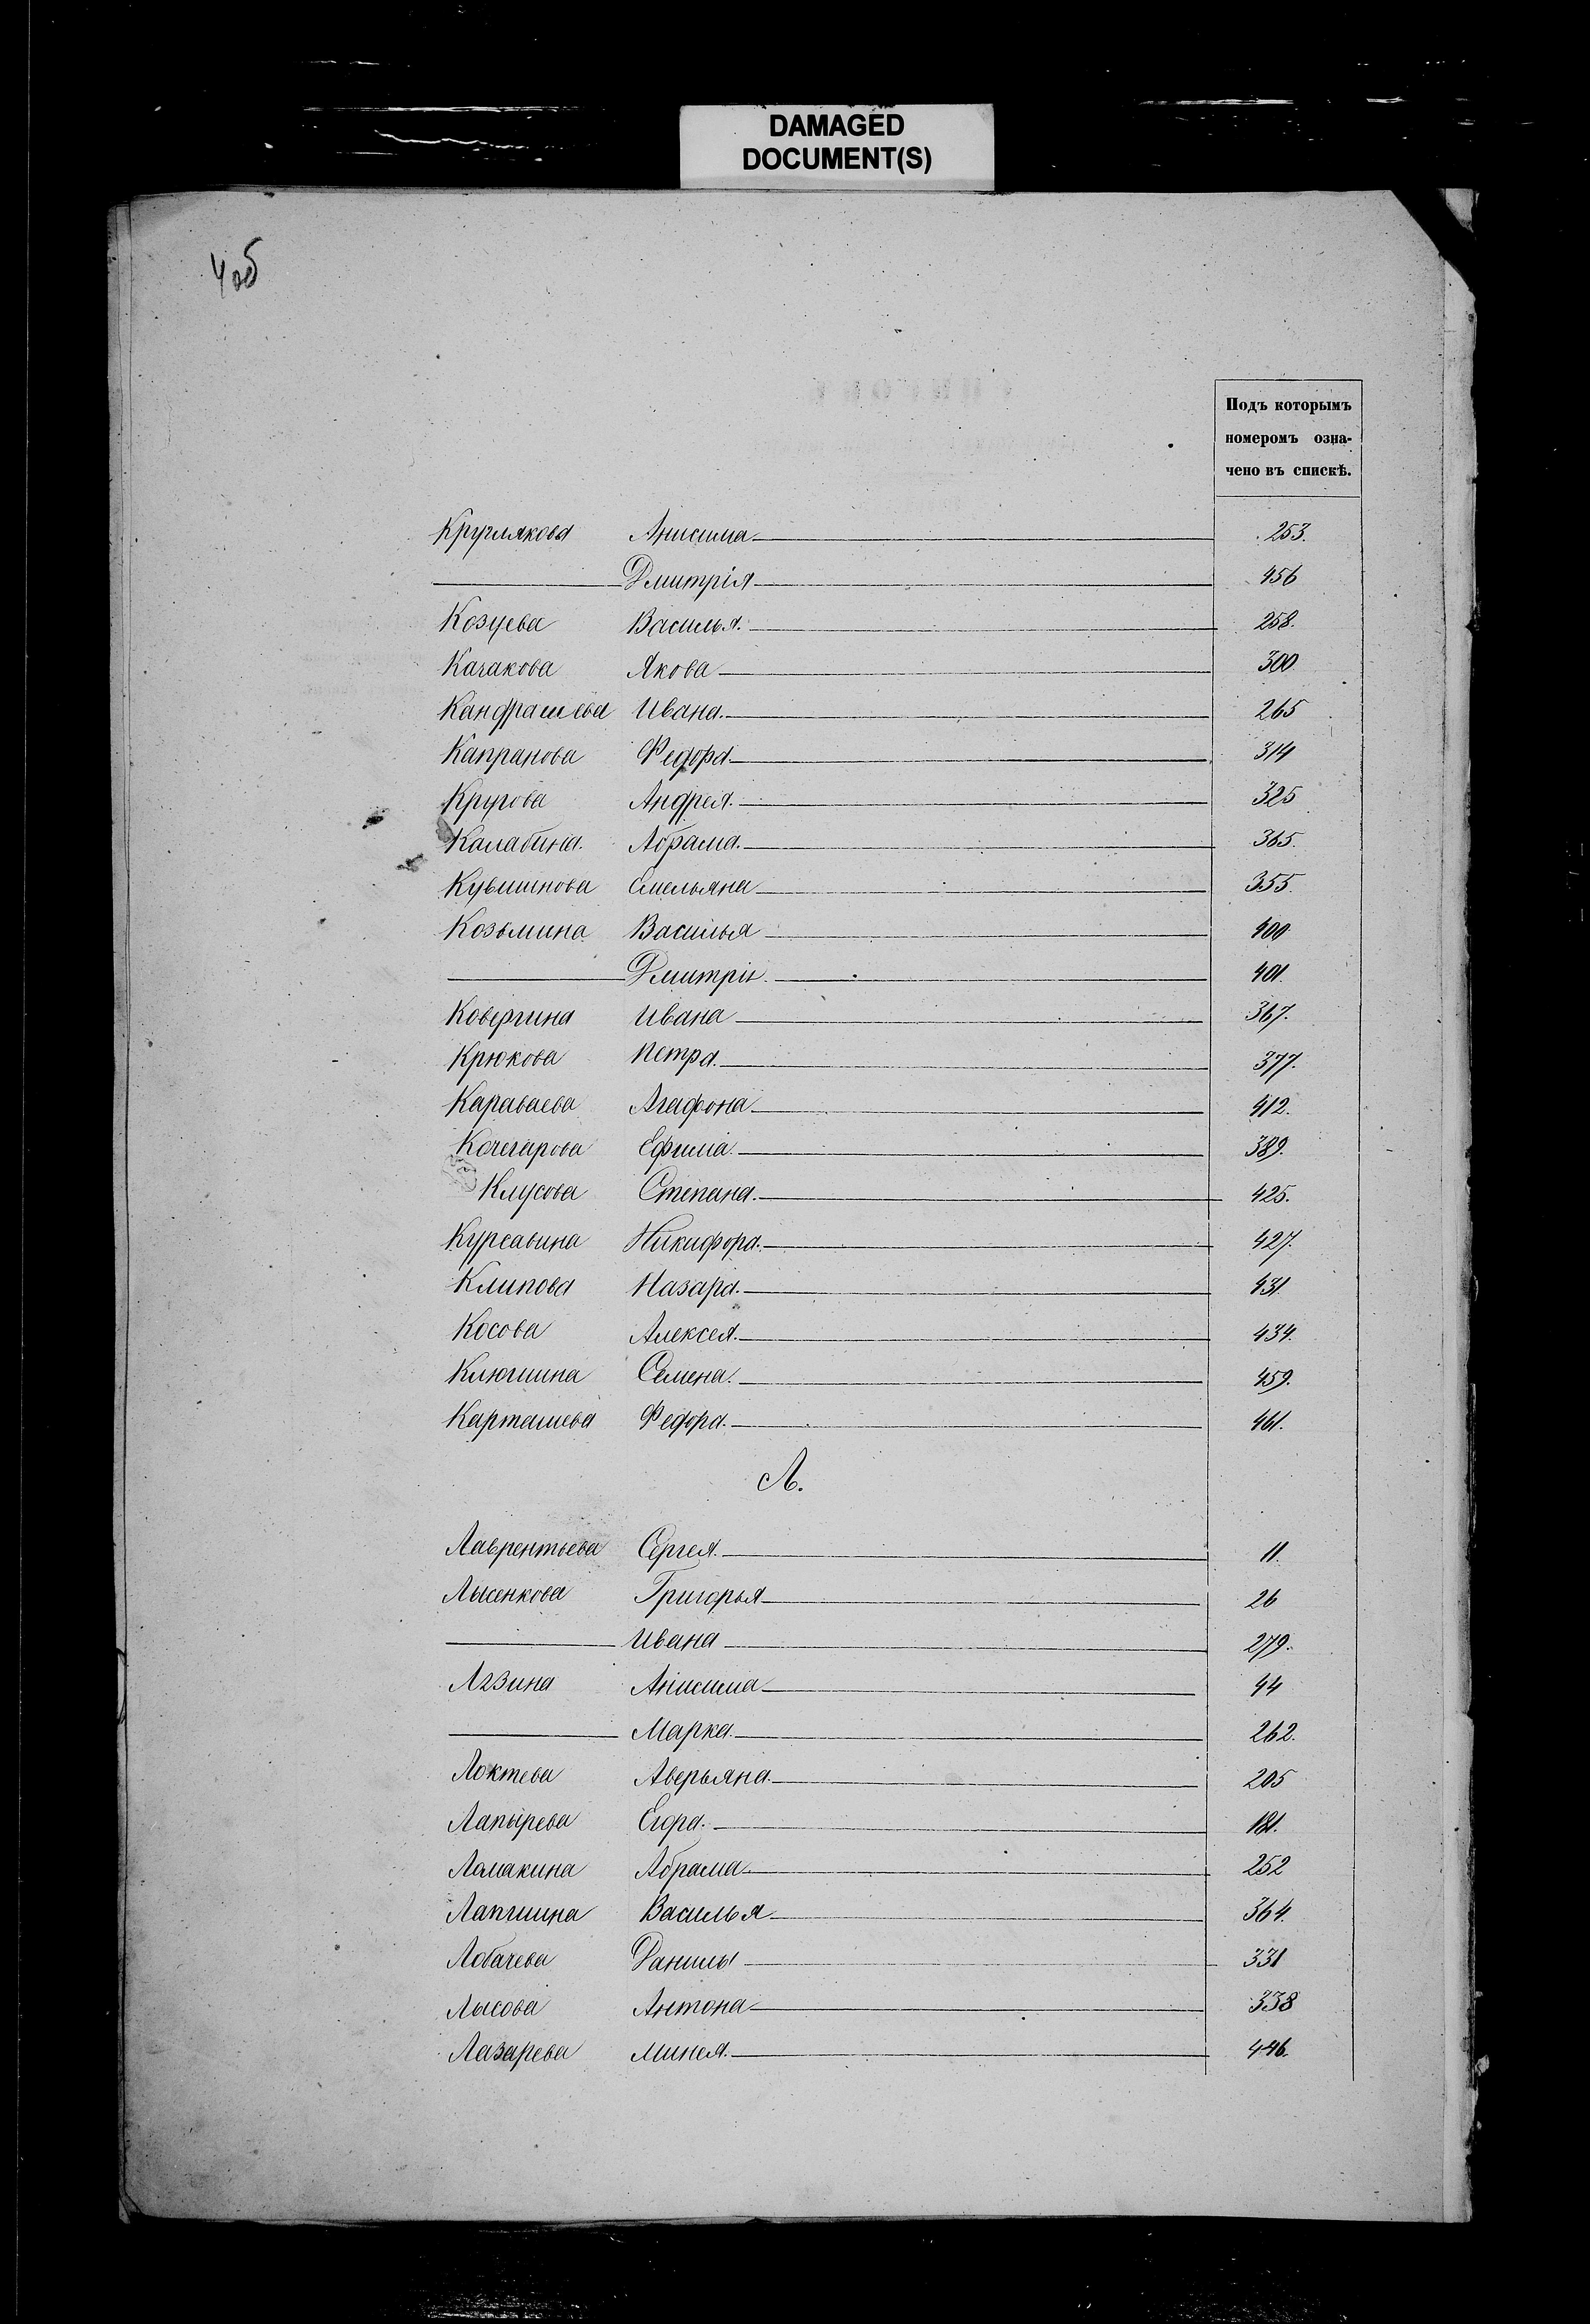 DAMAGED
DOCUMENT(S)
4об
Подъ которымъ
номеромъ озна-
чено въ спискѣ.
Круглякова Анисима 253.
Дмитрія 456
Козуева Василья. 258.
Качакова Якова 300
Кандрашева Ивана. 265
Капранова Федора 314
Кругова Андрея. 325
Калабина. Абрама. 365.
Кувшинова Емельяна 355.
Козьмина Василья 400
Дмитрія. 401.
Ковергина Ивана 367.
Крюкова Петра. 377.
Караваева Агафона 412.
Кочегарова Ефима. 389.
Клусова Степана. 425.
Курсавина Никифора. 427.
Климова Назара. 431.
Косова Алексея. 434.
Клюшина Семена. 459.
Карташева Федора. 461.
Л.
Лаврентьева Сергея. 11.
Лысенкова Григорья 26
Ивана 279.
Лязина Анисима 44
Марка. 262.
Локтева Аверьяна. 205
Лапырева Егора. 181.
Ломакина Абрама 252
Лапшина Василья 364.
Лобачева Данилы 331
Лысова Антона 338
Лазарева Минея. 446.